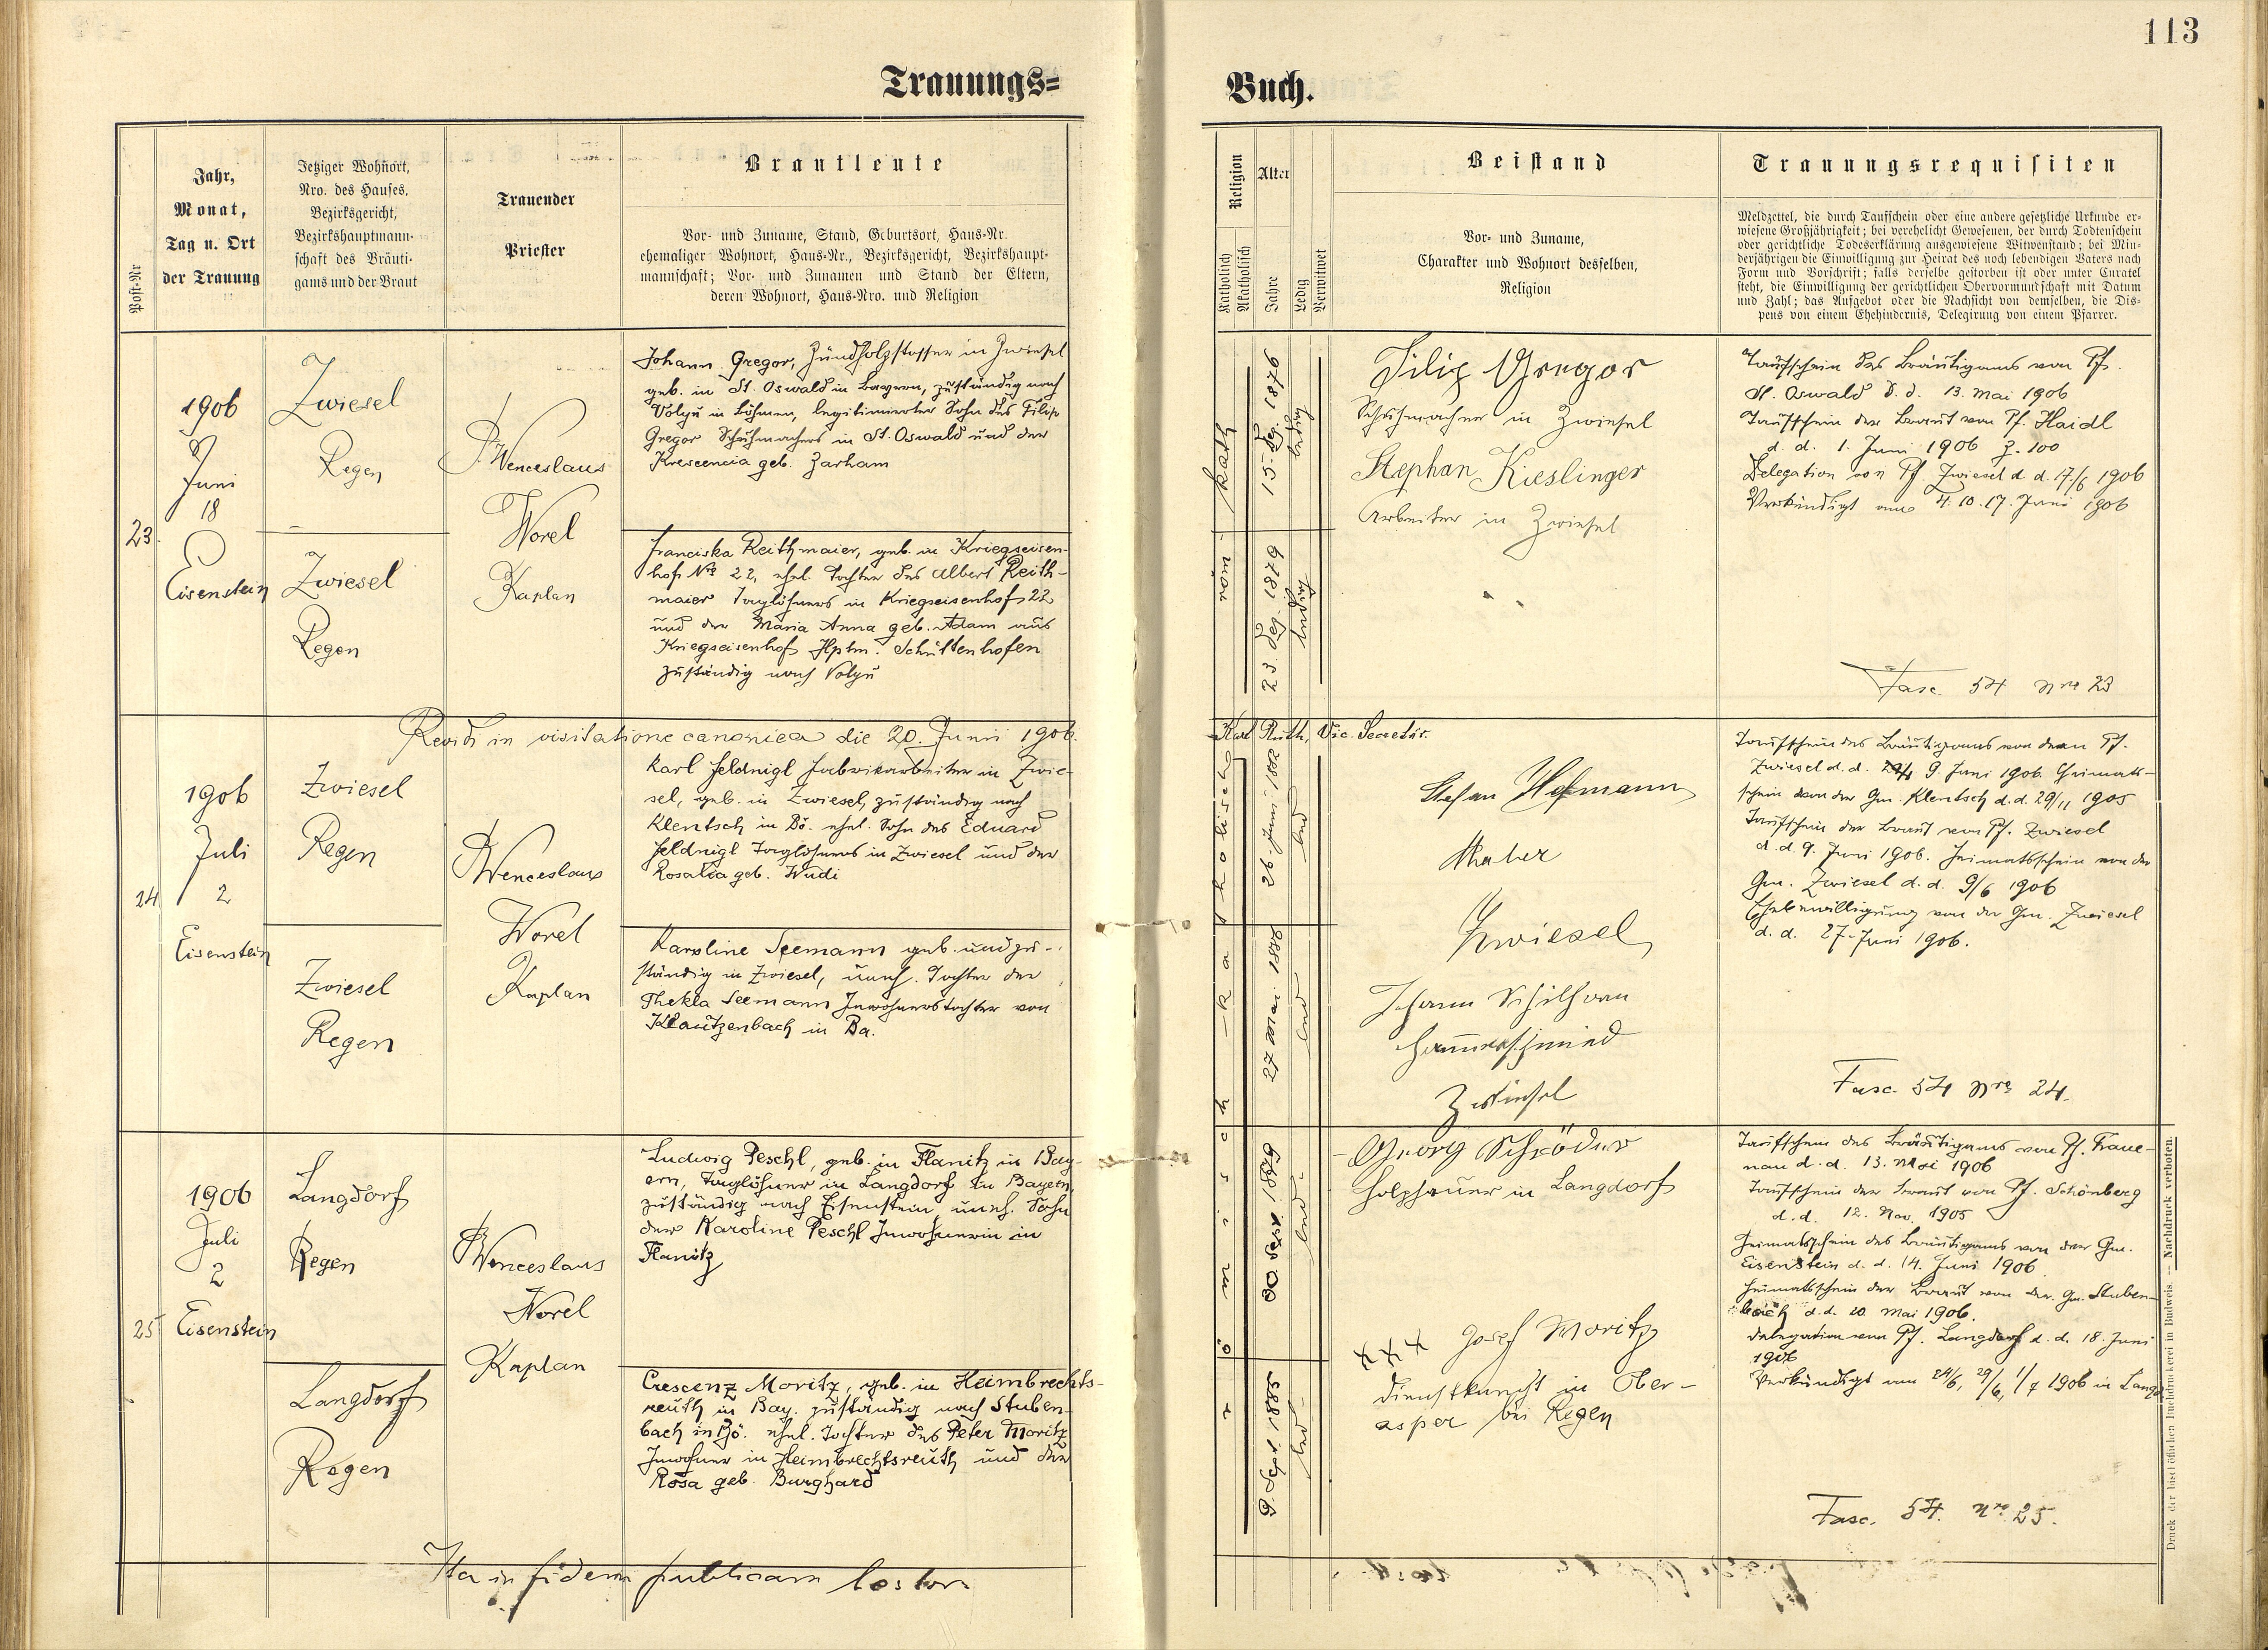 113
Trauungs=
Buch.
Post-Nr
Jahr,
Monat,
Tag u. Ort
der Trauung
Jetziger Wohnort,
Nro. des Hauses,
Bezirksgericht,
Bezirkshauptmann-
schaft des Bräuti-
gams und der Braut
Trauender
Priester
Brautleute
Vor- und Zuname, Stand, Geburtsort, Haus-Nr.
ehemaliger Wohnort, Haus-Nr., Bezirksgericht, Bezirkshaupt-
mannschaft; Vor- und Zunamen und Stand der Eltern,
deren Wohnort, Haus-Nro. und Religion
Religion
Katholisch
Akatholisch
Alter
Jahre
Ledig
Verwitwet
Beistand
Vor- und Zuname,
Charakter und Wohnort desselben,
Religion
Trauungsrequisiten
Meldzettel, die durch Taufschein oder eine andere gesetzliche Urkunde er-
wiesene Großjährigkeit; bei verehelicht Gewesenen, der durch Todtenschein
oder gerichtliche Todeserklärung ausgewiesene Witwenstand; bei Min-
derjährigen die Einwilligung zur Heirat des noch lebendigen Vaters nach
Form und Vorschrift; falls derselbe gestorben ist oder unter Curatel
steht, die Einwilligung der gerichtlichen Obervormundschaft mit Datum
und Zahl; das Aufgebot oder die Nachsicht von demselben, die Dis-
pens von einem Ehehindernis, Delegirung von einem Pfarrer.
23
1906
Juni
18
Eisenstein
Zwiesel
Regen
Zwiesel
Regen
P. Wenceslaus
Worel
Kaplan
Johann Gregor, Zündholzstosser in Zwiesel
geb. in St. Oswald in Bayern, zuständig nach
Volyň in Böhmen, legitimierter Sohn des Filip
Gregor Schuhmachers in St. Oswald und der
Krescencia geb. Zarham
Franciska Reithmaier, geb. in Kriegseisen-
hof Nro 22, ehel. Tochter des Albert Reith-
maier Taglöhners in Kriegseisenhof 22
und der Maria Anna geb. Adam aus
Kriegseisenhof Hptm. Schüttenhofen
zuständig nach Volyň
15. Dez. 1876
ledig
23. Dez. 1879
ledig
Filip Gregor
Schuhmacher in Zwiesel
Stephan Kieslinger
Arbeiter in Zwiesel
Taufschein des Bräutigams von Pf.
St. Oswald d. d. 13. Mai 1906
Taufschein der Braut von Pf. Haidl
d. d. 1. Juni 1906 Z. 100
Delegation von Pf. Zwiesel d. d. 17/6 1906
Verkündigt am 4. 10. 17. Juni 1906
Fasc 54 nro 23
Revidi in visitatione canonica die 20. Junii 1906.
Karl Ruth, Vic. Secretär.
24
1906
Juli
2
Eisenstein
Zwiesel
Regen
Zwiesel
Regen
P. Wenceslaus
Worel
Kaplan
Karl Feldnigl Fabrikarbeiter in Zwie-
sel, geb. in Zwiesel, zuständig nach
Klentsch in Bö. ehel. Sohn des Eduard
Feldnigl Taglöhners in Zwiesel und der
Rosalia geb. Wudi
Karoline Seemann geb. und zu-
ständig in Zwiesel, uneh. Tochter der
Thekla Seemann Inwohnerstochter von
Klautzenbach in Ba.
26. Juni 1882
led
27 Mai 1886
led
Stefan Hofmann
Maler
Zwiesel
Johann
Hammerschmied
Zwiesel
Taufschein des Bräutigams von dem Pf.
Zwiesel d. d. 9. Juni 1906. Heimats-
schein von der Gm. Klentsch d. d. 29/11 1905
Taufschein der Braut von Pf. Zwiesel
d. d. 9. Juni 1906. Heimatsschein von der
Gm. Zwiesel d. d. 9/6 1906
Ehebewilligung von der Gm. Zwiesel
d. d. 27. Juni 1906.
Fasc. 54 nro 24.
25
1906
Juli
2
Eisenstein
Langdorf
Regen
Langdorf
Regen
P. Wenceslaus
Worel
Kaplan
Ludwig Peschl, geb. in Flanitz in Bay-
ern, Taglöhner in Langdorf in Bayern,
zuständig nach Eisenstein, uneh. Sohn
der Karoline Peschl Inwohnerin in
Flanitz
Crescenz Moritz, geb. in Heimbrechts-
reuth in Bay. zuständig nach Stuben-
bach in Bö. ehel. Tochter des Peter Moritz
Inwohner in Heimbrechtsreuth und der
Rosa geb. Burghard
30. Sept. 1879
led.
9. Sept. 1885
led.
Georg Schröder
Holzhauer in Langdorf
xxx Josef Moritz
Dienstknecht in Ober-
asper bei Regen
Taufschein des Bräutigams von Pf. Fraue-
nau d. d. 13. Mai 1906
Taufschein der Braut von Pf. Schönberg
d. d. 12. Nov. 1905
Heimatsschein des Bräutigams von der Gm.
Eisenstein d. d. 14. Juni 1906
Heimatsschein der Braut von der Gm. Stuben-
bach d. d. 20 Mai 1906.
Delegation von Pf. Langdorf d. d. 18. Juni
1906
Verkündigt am 24/6, 29/6, 1/7 1906 in Langd
Fasc. 54. nro 25.
Ita in fidem publicam
Druck der bischöflichen Buchdruckerei in Budweis. — Nachdruck verboten.